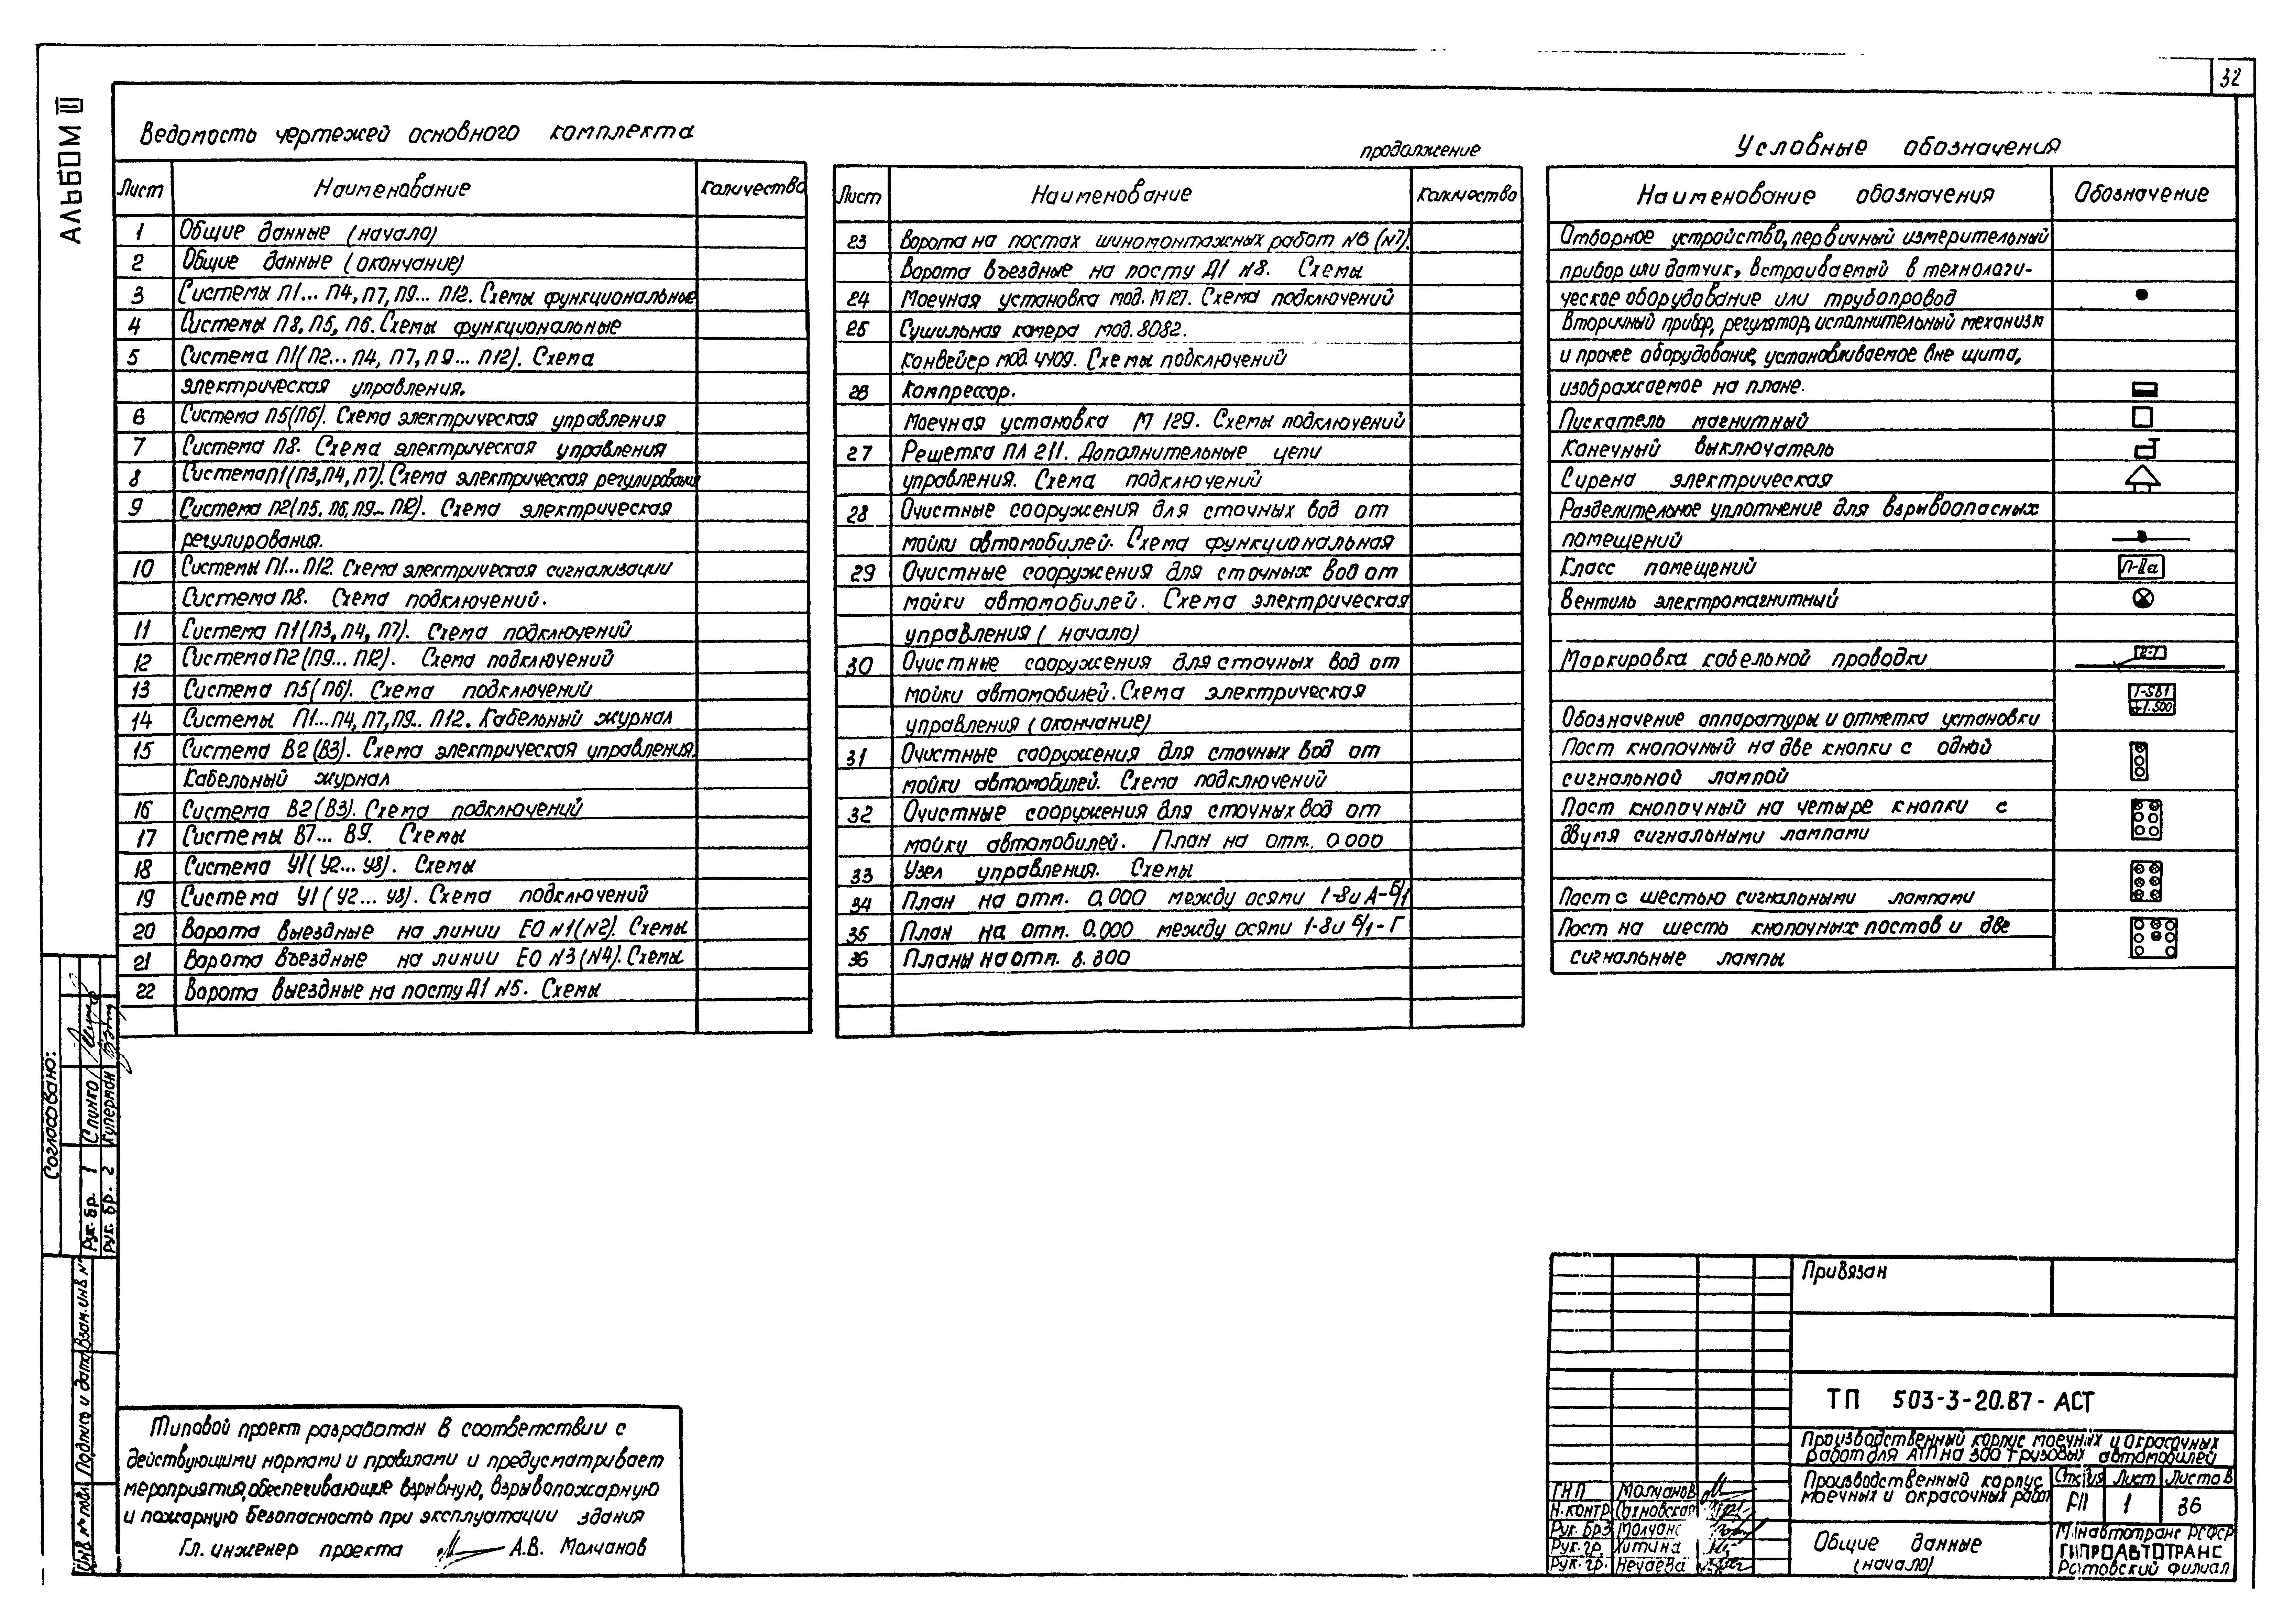 32
АЛЬБОМ III
Ведомость чертежей основного комплекта
Лист Наименование Количество
1 Общие данные (начало)
2 Общие данные (окончание)
3 Системы П1... П4, П7, П9... П12. Схемы функциональные
4 Системы П8, П5, П6. Схемы функциональные
5 Система П1(П2... П4, П7, П9... П12). Схема
электрическая управления.
6 Система П5(П6). Схема электрическая управления
7 Система П8. Схема электрическая управления
8 Система П1(П3, П4, П7). Схема электрическая регулирования
9 Система П2(П5, П6, П9... П12). Схема электрическая
регулирования.
10 Системы П1... П12. Схема электрическая сигнализации
Система П8. Схема подключений.
11 Система П1(П3, П4, П7). Схема подключений
12 Система П2(П9... П12). Схема подключений
13 Система П5(П6). Схема подключений
14 Системы П1... П4, П7, П9.. П12. Кабельный журнал
15 Система В2(В3). Схема электрическая управления.
Кабельный журнал
16 Система В2(В3). Схема подключений
17 Системы В7... В9. Схемы
18 Система У1(У2... У8). Схемы
19 Система У1(У2... У8). Схема подключений
20 Ворота выездные на линии ЕО N1(N2). Схемы
21 Ворота въездные на линии ЕО N3(N4). Схемы
22 Ворота выездные на посту Д1 N5. Схемы
продолжение
Лист Наименование Количество
23 Ворота на постах шиномонтажных работ N6 (N7).
Ворота въездные на посту Д1 N8. Схемы
24 Моечная установка мод. М127. Схема подключений
25 Сушильная камера мод. 8082.
Конвейер мод. 4409. Схемы подключений
26 Компрессор.
Моечная установка М 129. Схемы подключений
27 Решетка ПЛ 211. Дополнительные цепи
управления. Схема подключений
28 Очистные сооружения для сточных вод от
мойки автомобилей. Схема функциональная
29 Очистные сооружения для сточных вод от
мойки автомобилей. Схема электрическая
управления (начало)
30 Очистные сооружения для сточных вод от
мойки автомобилей. Схема электрическая
управления (окончание)
31 Очистные сооружения для сточных вод от
мойки автомобилей. Схема подключений
32 Очистные сооружения для сточных вод от
мойки автомобилей. План на отм. 0.000
33 Узел управления. Схемы
34 План на отм. 0.000 между осями 1-8 и А-Б/1
35 План на отм. 0.000 между осями 1-8 и Б/1-Г
36 Планы на отм. 3.300
Условные обозначения
Наименование обозначения Обозначение
Отборное устройство, первичный измерительный
прибор или датчик, встраиваемый в технологи-
ческое оборудование или трубопровод
Вторичный прибор, регулятор, исполнительный механизм
и прочее оборудование, устанавливаемое вне щита,
изображаемое на плане.
Пускатель магнитный
Конечный выключатель
Сирена электрическая
Разделительное уплотнение для взрывоопасных
помещений
Класс помещений П-IIа
Вентиль электромагнитный
Маркировка кабельной проводки 2-1
1-SB1
+1.500
Обозначение аппаратуры и отметка установки
Пост кнопочный на две кнопки с одной
сигнальной лампой
Пост кнопочный на четыре кнопки с
двумя сигнальными лампами
Пост с шестью сигнальными лампами
Пост на шесть кнопочных постов и две
сигнальные лампы
Согласовано:
Рук. бр. 1 Спинко
Рук. бр. 2 Куперман
Инв. № подл. Подпись и дата Взам. инв №
Типовой проект разработан в соответствии с
действующими нормами и правилами и предусматривает
мероприятия, обеспечивающие взрывную, взрывопожарную
и пожарную безопасность при эксплуатации здания
Гл. инженер проекта А.В. Молчанов
Привязан
ТП 503-3-20.87-АСТ
Производственный корпус моечных и окрасочных
работ для АТП на 300 грузовых автомобилей
ГИП Молчанов
Н. контр Сахновская
Рук. бр3 Молчан
Рук. гр. Хитина
Рук. гр. Нечаева
Производственный корпус
моечных и окрасочных работ
Стадия Лист Листов
РП 1 36
Общие данные
(начало)
Минавтотранс РСФСР
ГИПРОАВТОТРАНС
Ростовский филиал